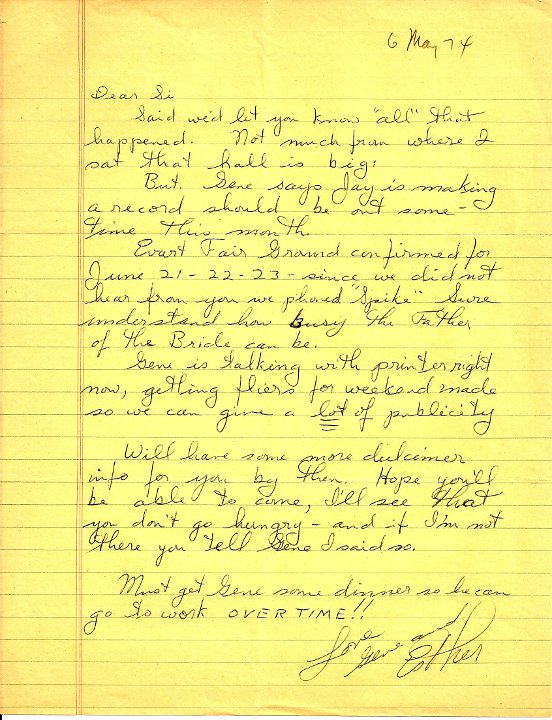 6 May 74
Dear Si
Said we'd let you know "all" that
happened. Not much from where I
sat that hall is big!
But. Gene says Jay is making
a record should be out some-
time this month.
Evart Fair Ground confirmed for
June 21-22-23 - since we did not
hear from you we phoned "Spike" Sure
understand how busy the Father
of the Bride can be.
Gene is talking with printer right
now, getting fliers for weekend made
so we can give a lot of publicity
Will have some more dulcimer
info for you by then. Hope you'll
be able to come, I'll see that
you don't go hungry - and if I'm not
there you tell Gene I said so.
Must get Gene some dinner so he can
go to work OVERTIME!!
Love
Gene and
Esther